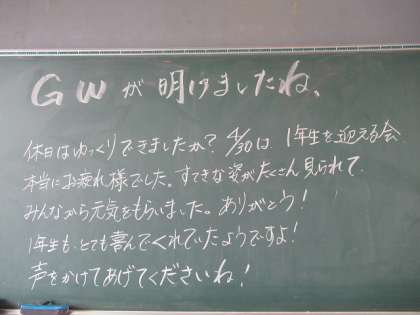 GWが明けましたね、
休日はゆっくりできましたか？4/30は1年生を迎える会
本当にお疲れ様でした。すてきな姿がたくさん見られて
みんなから元気をもらいました。ありがとう！
1年生も、とても喜んでくれていたようですよ！
声をかけてあげてくださいね！